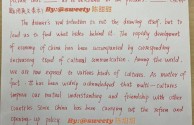 The drawer's real intention is not the drawing itself, but to
lead us to find what hides behind it. The rapidly development
of economy of China has been accompanied by corresponding
increasing trend of cultural communication. Among the world,
we are now exposed to various kinds of cultures. As matter
of fact, it has been widely acknowledged that multi-cultures
can improve our mutual understanding and friendship with other
Countries since China has been carrying out the reform and
opening-up policy.
By:@sweety
By:@sweety